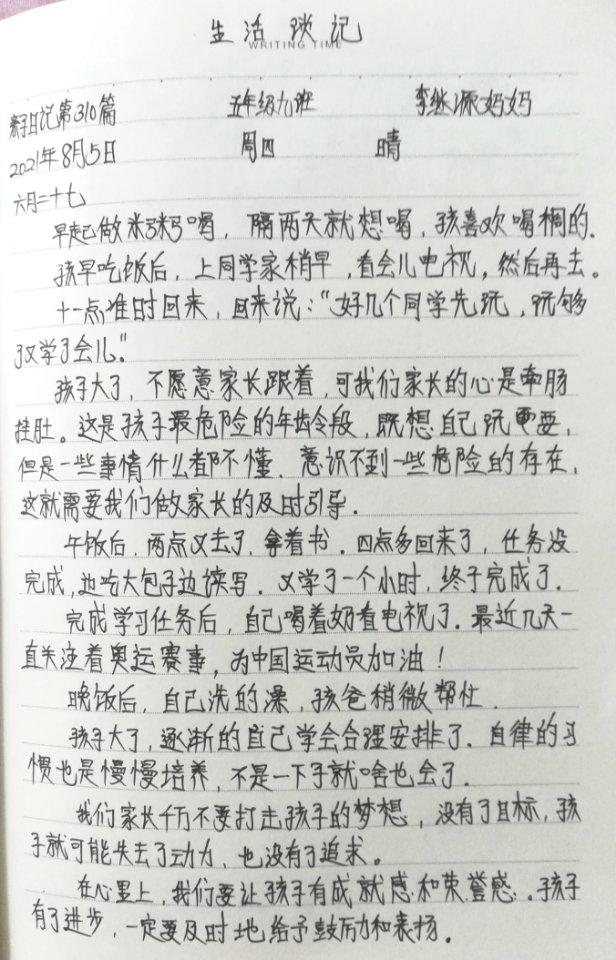 生活琐记
WRITING TIME
亲子日记第310篇 五年级九班 李继源妈妈
2021年8月5日 周四 晴
六月二十七
早起做米粥喝，隔两天就想喝，孩喜欢喝稠的。
孩早吃饭后，上同学家稍早，看会儿电视，然后再去。
十一点准时回来，回来说：“好几个同学先玩，玩够
了又学了会儿。”
孩子大了，不愿意家长跟着，可我们家长的心是牵肠
挂肚。这是孩子最危险的年龄段，既想自己玩重要，
但是一些事情什么都不懂，意识不到一些危险的存在，
这就需要我们做家长的及时引导。
午饭后，两点又去了，拿着书。四点多回来了，任务没
完成，边吃大包子边读写。又学了一个小时，终于完成了。
完成学习任务后，自己喝着奶看电视了。最近几天一
直关注着奥运赛事，为中国运动员加油！
晚饭后，自己洗的澡，孩爸稍微帮忙。
孩子大了，逐渐的自己学会合理安排了。自律的习
惯也是慢慢培养，不是一下子就啥也会了。
我们家长千万不要打击孩子的梦想，没有了目标，孩
子就可能失去了动力，也没有了追求。
在心里上，我们要让孩子有成就感和荣誉感。孩子
有了进步，一定要及时地给予鼓励和表扬。